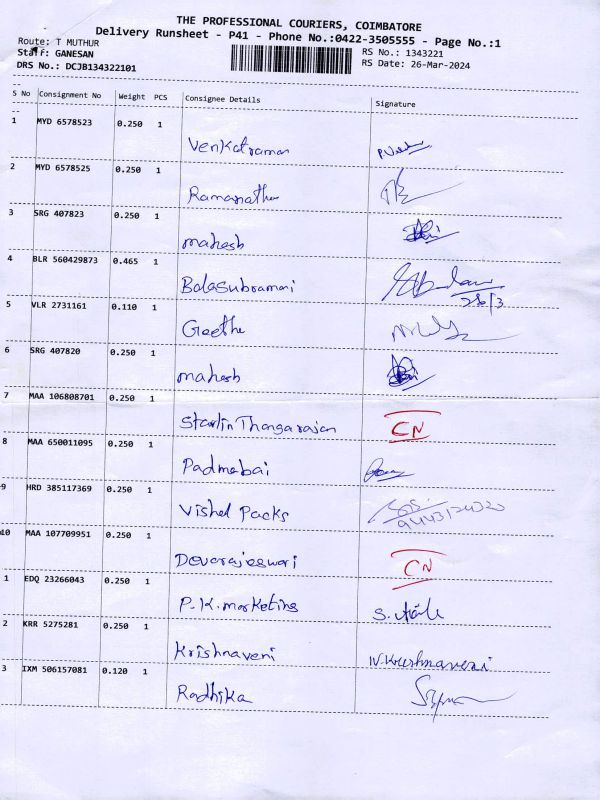 THE PROFESSIONAL COURIERS, COIMBATORE
Delivery Runsheet - P41 - Phone No.:0422-3505555 - Page No.:1
Route: T MUTHUR RS No.: 1343221
Staff: GANESAN RS Date: 26-Mar-2024
DRS No.: DCJB134322101
S No Consignment No Weight PCS Consignee Details Signature
1 MYD 6578523 0.250 1
Venkatraman
2 MYD 6578525 0.250 1
Ramanathan
3 SRG 407823 0.250 1
mahesh
4 BLR 560429873 0.465 1
Balasubramani
26/3
5 VLR 2731161 0.110 1
Geetha
6 SRG 407820 0.250 1
mahesh
7 MAA 106808701 0.250 1
Starlin Thangarajan CN
8 MAA 650011095 0.250 1
Padmabai
9 HRD 385117369 0.250 1
Vishal Packs
10 MAA 107709951 0.250 1
Devarajeswari CN
1 EDQ 23266043 0.250 1
P.K. marketing
2 KRR 5275281 0.250 1
Krishnaveni N. Krishnaveni
3 IXM 506157081 0.120 1
Radhika